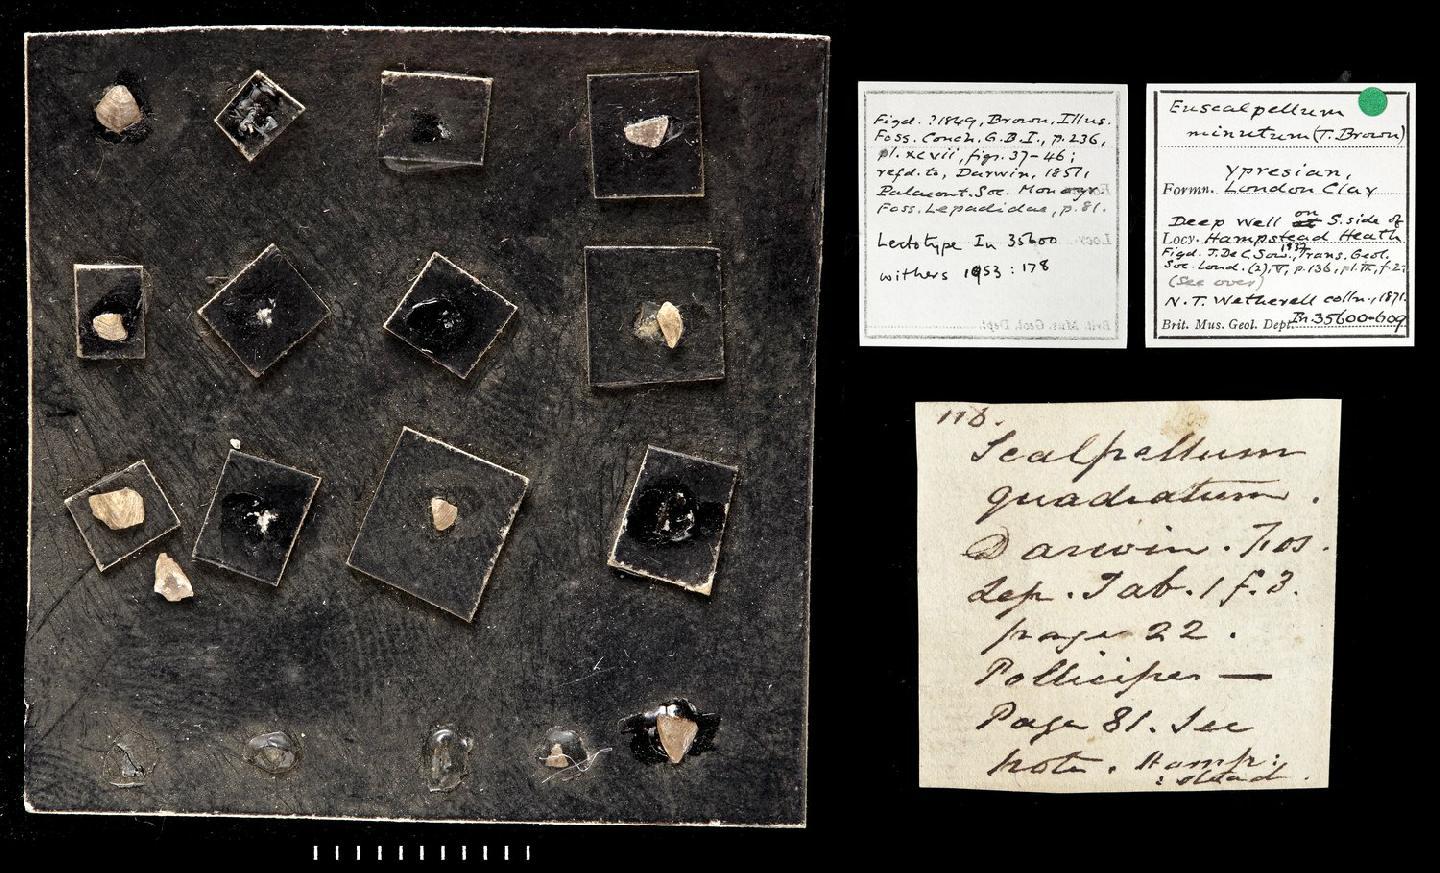 Figd. ?1849, Brown, Illus.
Foss. Conch. G.B.I., p.236,
pl. xcvii, figs. 37-46;
refd. to, Darwin, 1851,
Palaeont. Soc. Monogr
Foss. Lepadidae, p.81.
Lectotype In 35600
Withers 1953: 178
Brit. Mus. Geol. Dept.
Euscalpellum
minutum (T. Brown)
Ypresian,
Formn. London Clay
Deep Well on S. side of
Locy. Hampstead Heath
Figd. J. De C. Sow., 1837, Trans. Geol.
Soc. Lond. (2), V, p.136, pl.
(See over)
N.T. Wetherell colln., 1871.
Brit. Mus. Geol. Dept. In.35600-609
Scalpellum
quadratum.
Darwin. Fos.
Lep. Tab. 1 f. 3.
page 22.
Pollicipes —
Page 81. See
note. Hamp:
:stead.